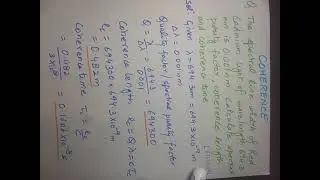 COHERENCE
Q. The spectral line width of Red
Cadmium light of wavelength 694.3
nm is 0.001 nm. Calculate spectral
purity factor, coherence length
and coherence time.
Sol: Given λ = 694.3nm = 694.3×10⁻⁹m
Δλ = 0.001nm
Quality factor / spectral purity factor
Q = λ/Δλ = 694.3/.0001 = 694300
Coherence length ℓc = Qλ = cτ
ℓc = 694300 × 694.3×10⁻⁹m
= 0.482m
Coherence time, τc = ℓc/c
= 0.482/3×10⁸ = 0.1606×10⁻⁸s